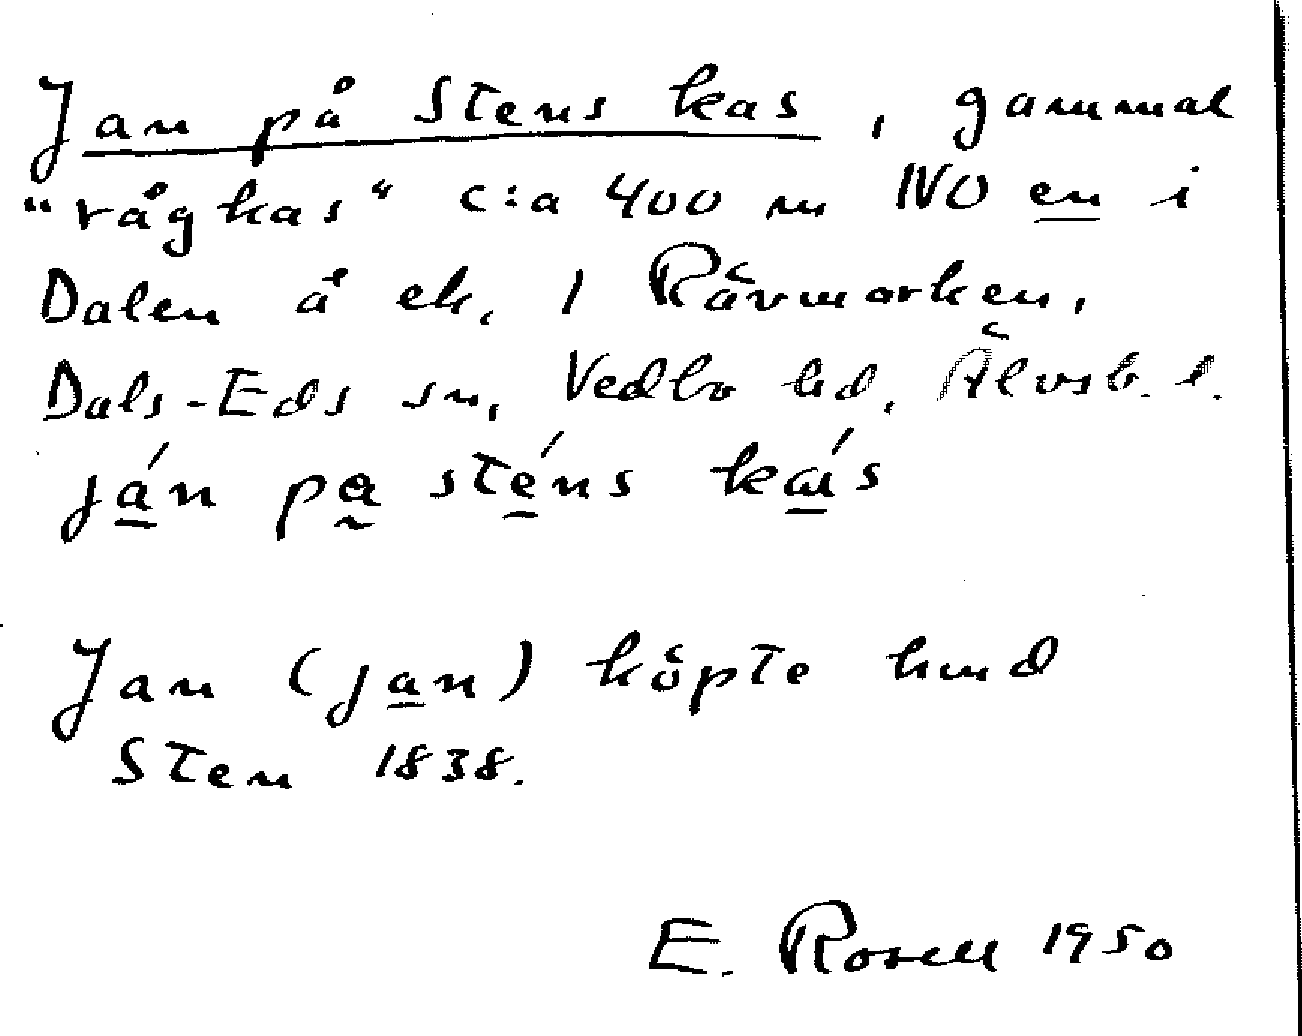 Jan på Stens kas, gammal
"rågkas" c:a 400 m NO en i
Dalen å ek. 1 Rävmarken,
Dals-Eds sn, Vedbo hd, Älvsb. l.
ján pa sténs kás
Jan (jan) köpte hmd
Sten 1838.
E. Rosell 1950